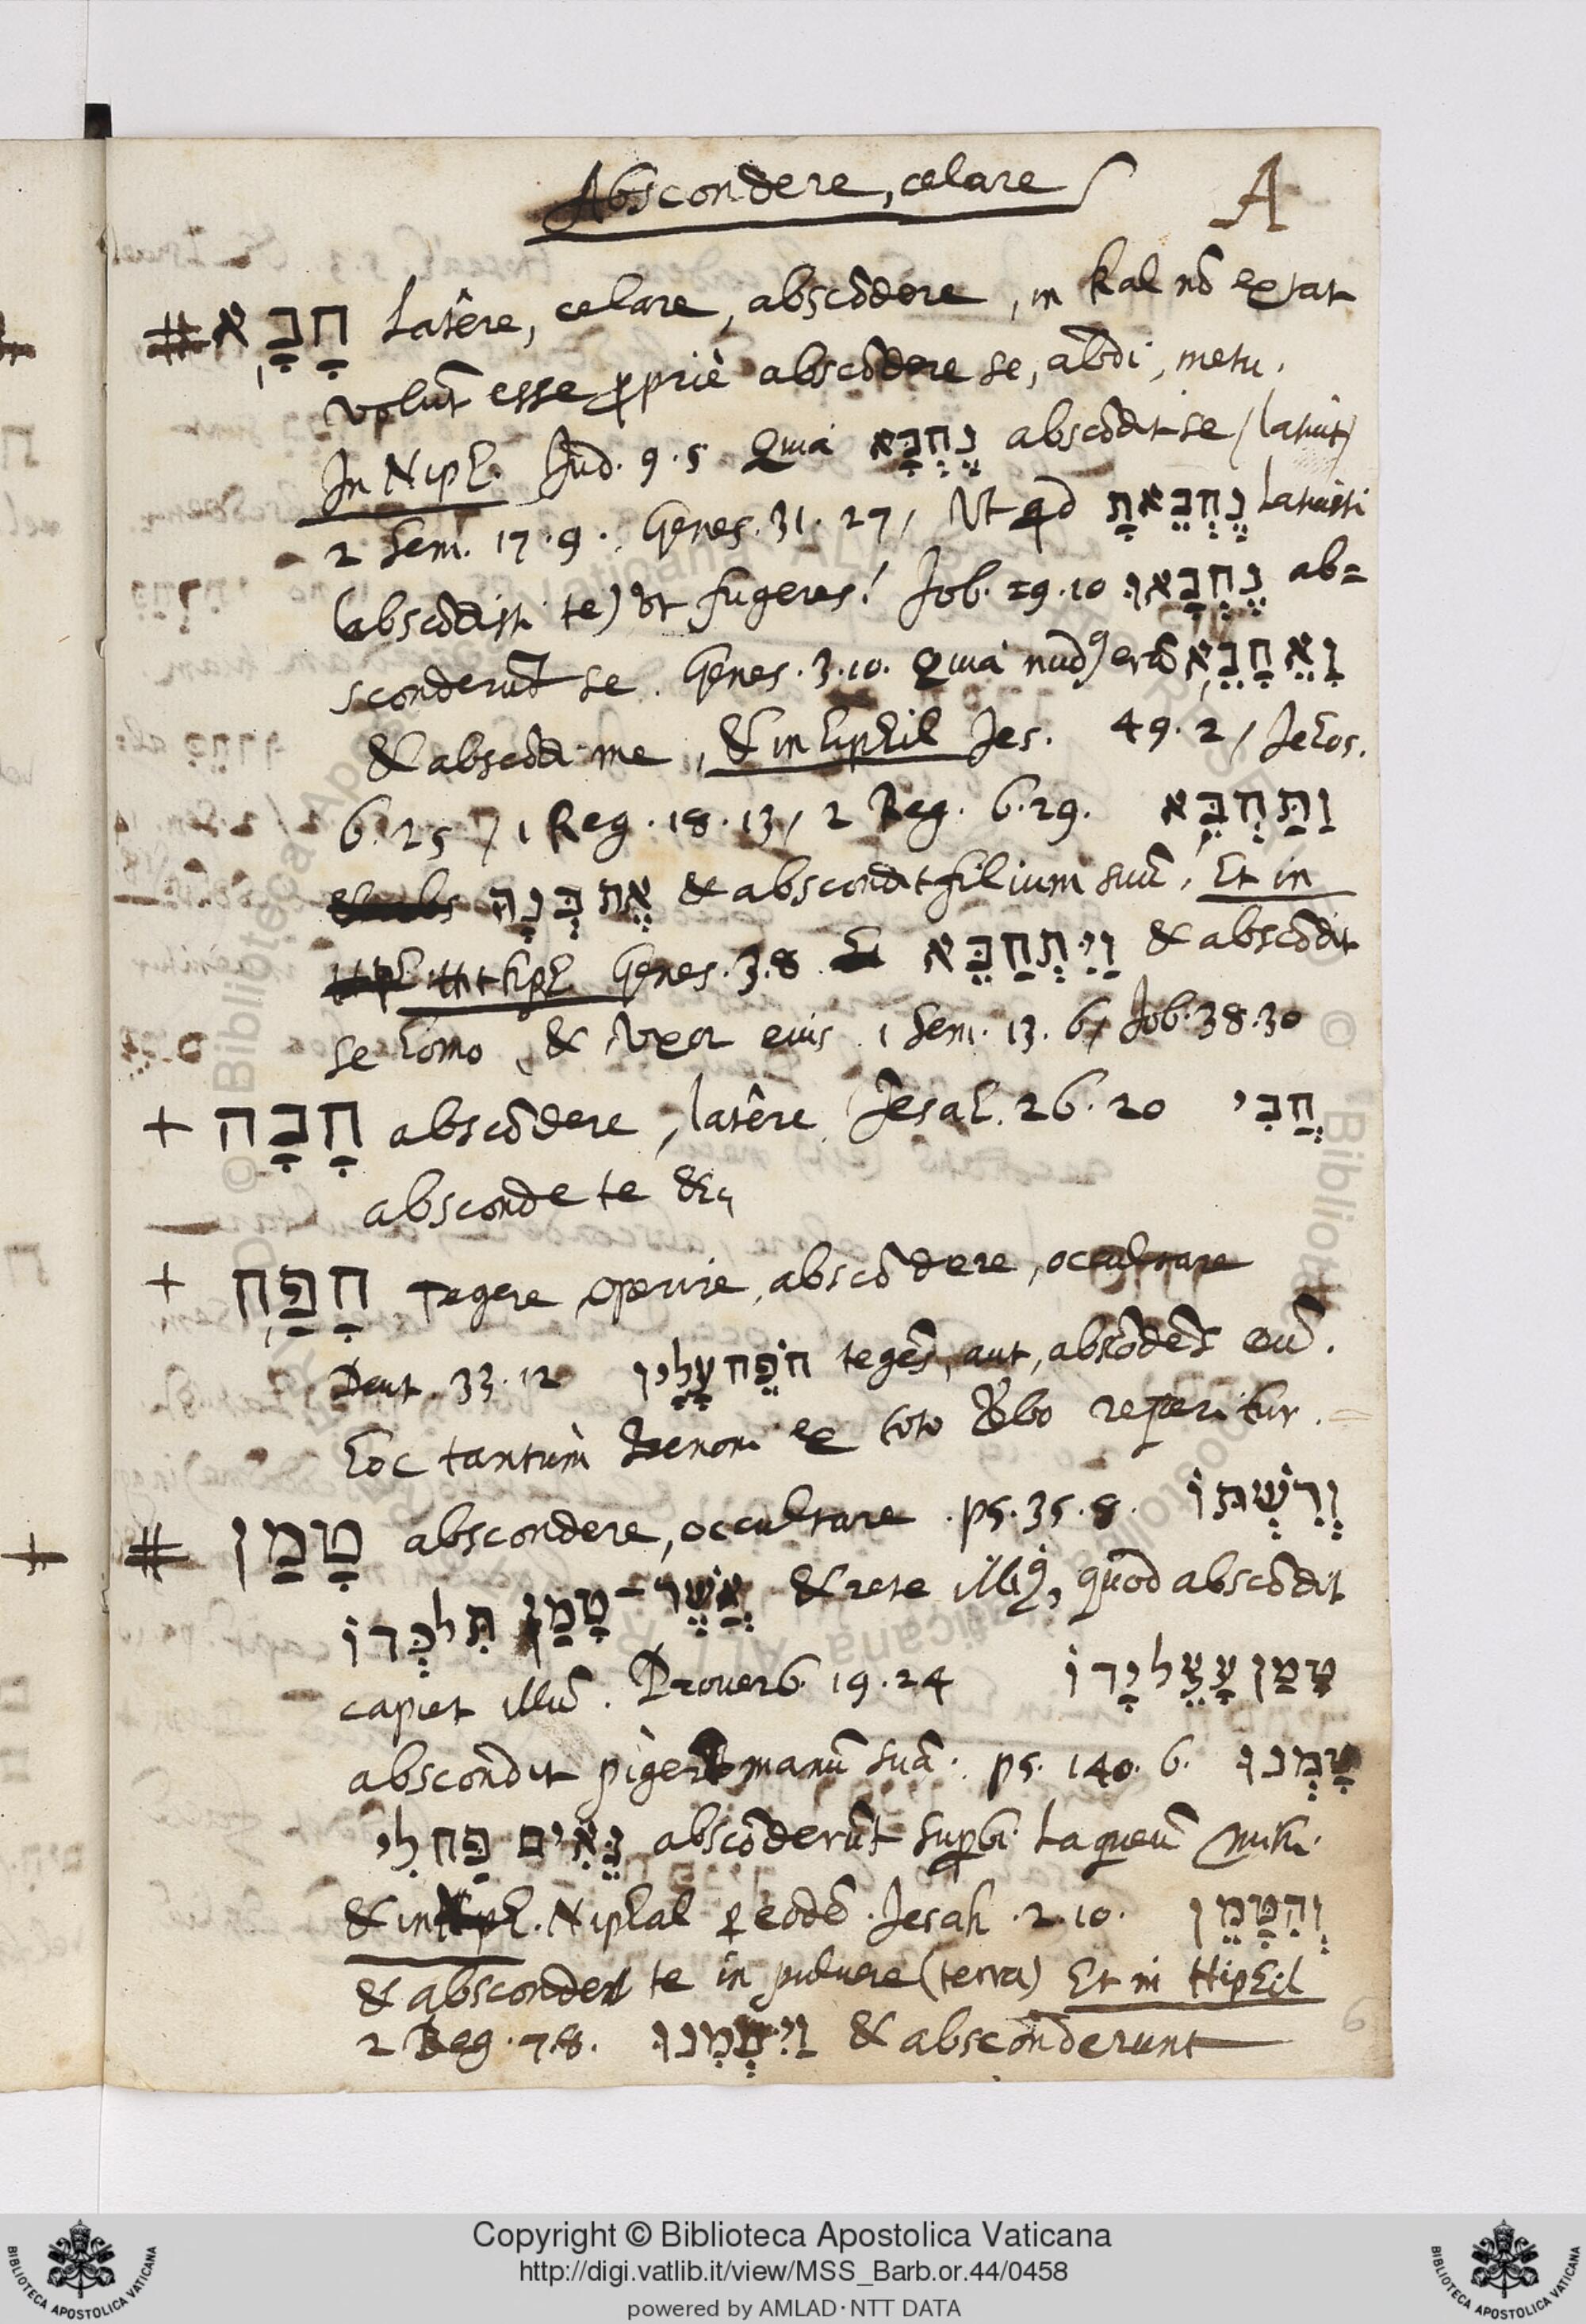 Abscondere, celare
A
# חָבָּא Latêre, celare, abscōdere, in Kal nō extat
volūt esse ꝓpriè abscōdere se, abdi, metu.
In Niph. Jud. 9.5 Quia נֶחְבָּא abscōdit se (latuit)
2 Sem. 17.9. Genes. 31.27, Ut qd נֶחְבֵּאתָ Latuisti
(abscōdisti te) ut fugeres! Job. 29.10 נֶחְבָּאוּ ab=
sconderūt se. Genes. 3.10. Quia nudꝰ erā וָאֵחָבֵא
& abscōdi me, & in hiphil Jes. 49.2, Jehos.
6.25, 1 Reg. 18.13, 2 Reg. 6.29. וַתַּחְבִּא
& abs אֶת בְּנָהּ & abscondit filium suū, Et in
Hithhph Genes. 3.8 וַיִּתְחַבֵּא & abscōdit
se homo, & Uxor eius 1 Sem. 13.6, Job. 38.30
+ חָבָּה abscōdere, latêre Jesah. 26.20 חֲבִי
absconde te &c
+ חָפַּח Tegere operire, abscōdere, occultare
Deut. 33.12 חֹפֵּח עָלָיו tegēs, aut, abscōdēs eū.
hoc tantùm Benoni ex toto Vbo reperitur.
# טָמַן abscondere, occultare. ps. 35.8. וְרִשְׁתּוֹ
אֲשֶׁר־טָמַן תִּלְכְּדוֹ & rete illiꝰ, quod abscōdit
capiet illū. Proverb. 19.24 טָמַן עָצֵל יָדוֹ
abscondit piger manū suā. ps. 140.6. טָמְנוּ
גֵּאִים פַּח לִי abscōderūt supbi Laqueū mihi.
& in Niphal ꝑ eodē. Jesah. 2.10. וְהִטָּמֵן
& absconde te in pulvere (terra) Et in Hiphil
2 Reg. 7.8. וַיַּטְמִנוּ & absconderunt
6
Copyright © Biblioteca Apostolica Vaticana
http://digi.vatlib.it/view/MSS_Barb.or.44/0458
powered by AMLAD·NTT DATA
BIBLIOTECA APOSTOLICA VATICANA
BIBLIOTECA APOSTOLICA VATICANA